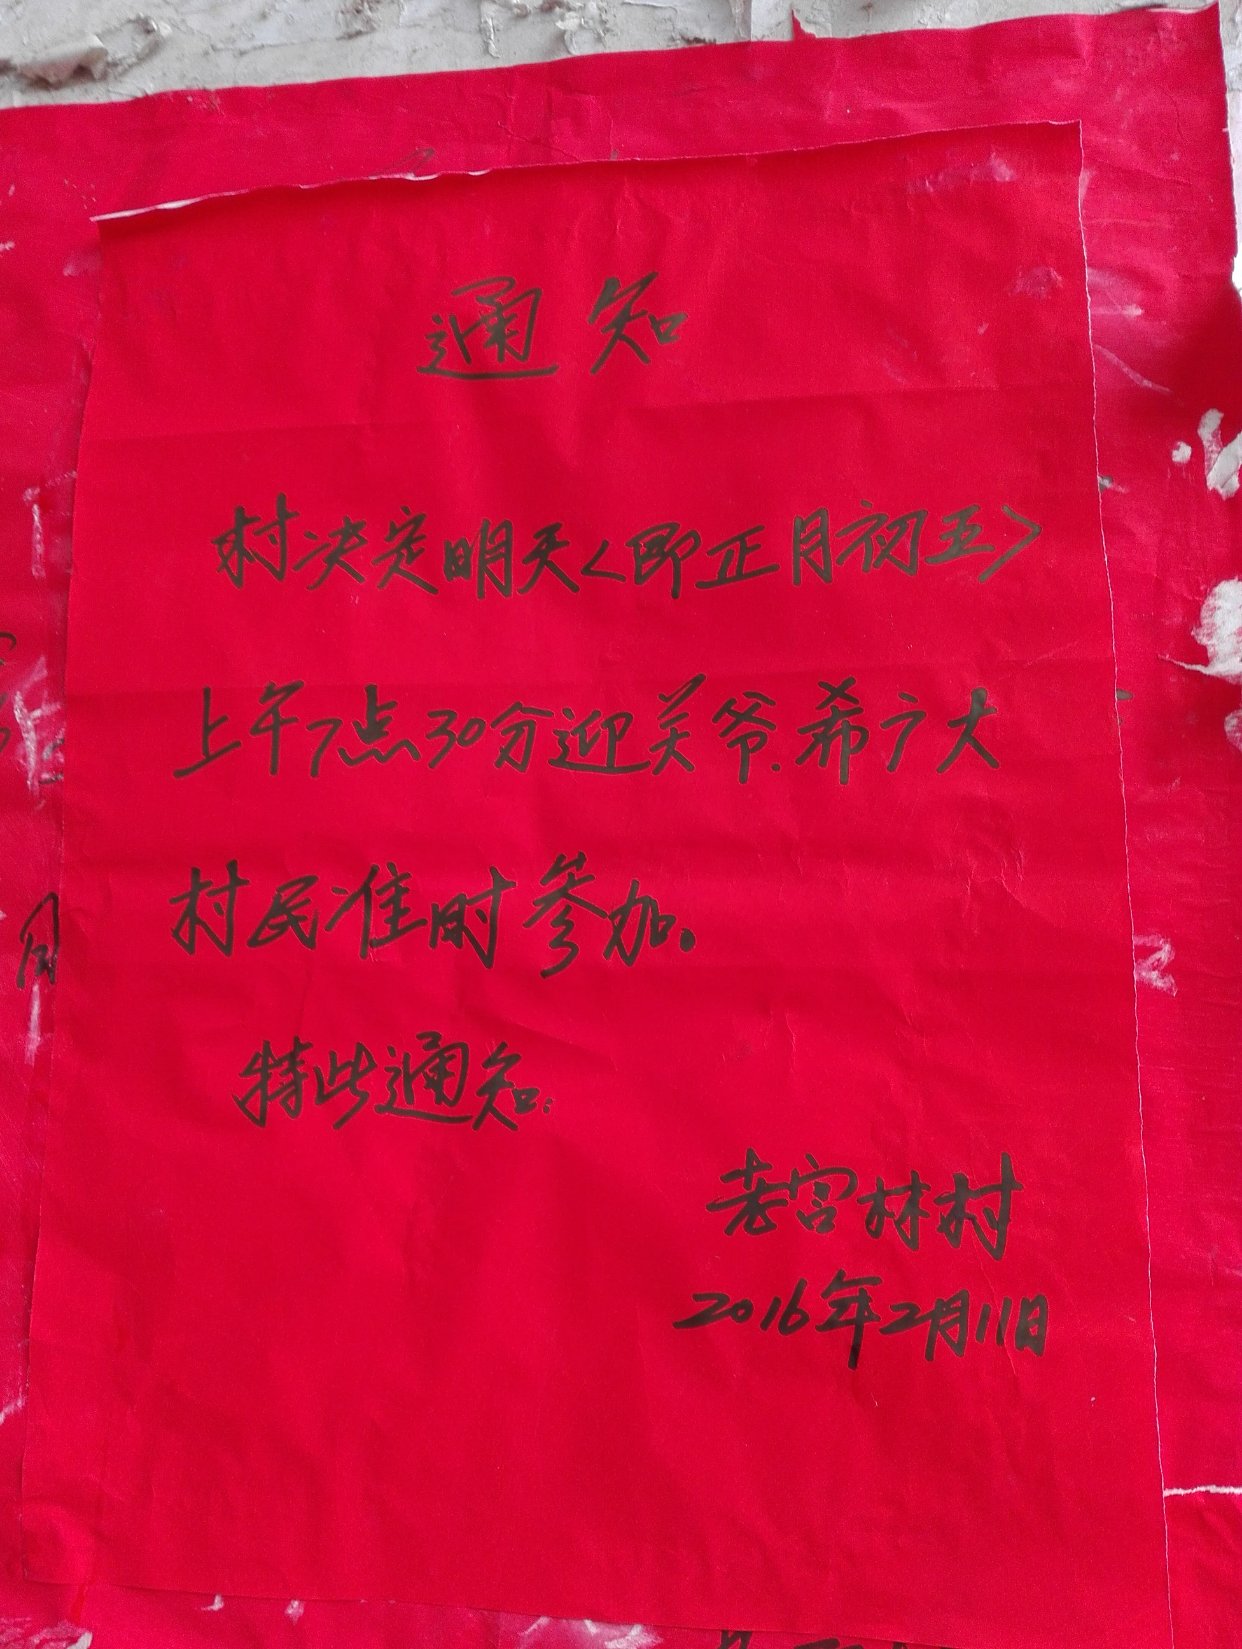 通知
村决定明天<即正月初五>
上午7点30分迎关爷.希广大
村民准时参加。
特此通知.
老宫林村
2016年2月11日